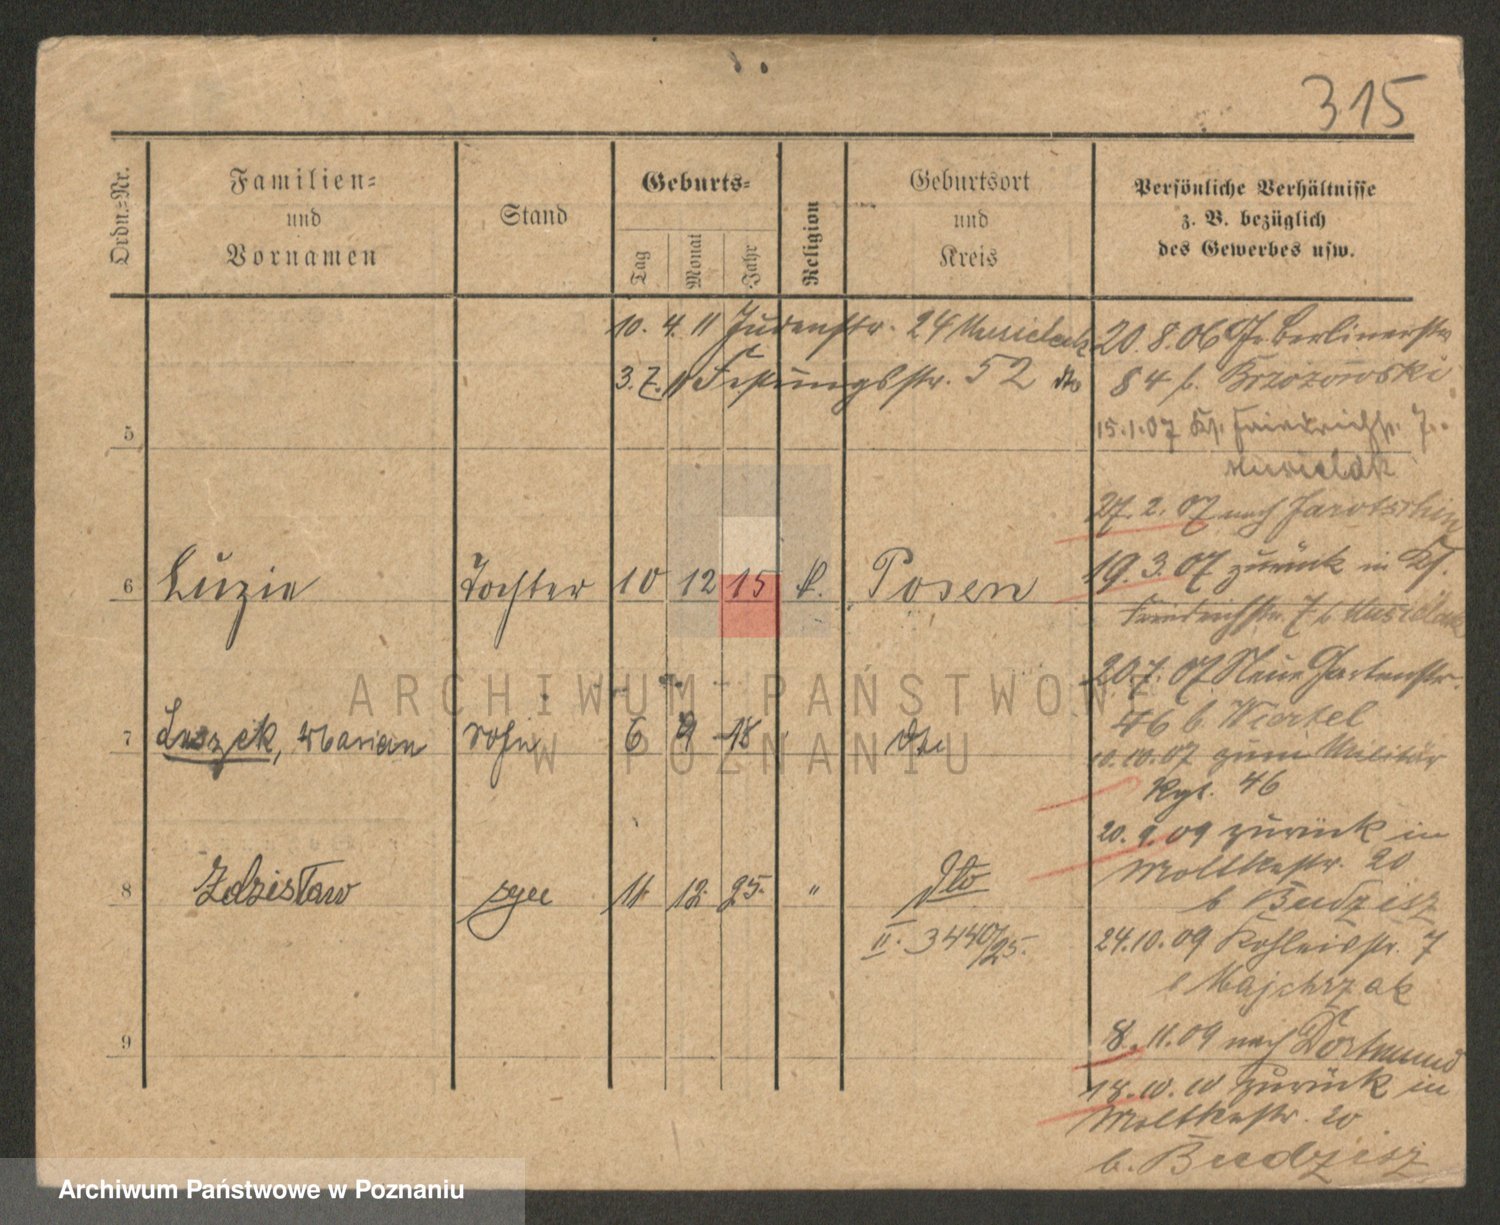 315
Ordn.-Nr.
Familien-
und
Vornamen
Stand
Geburts-
Tag
Monat
Jahr
Religion
Geburtsort
und
Kreis
Persönliche Verhältnisse
z. B. bezüglich
des Gewerbes usw.
10. 4. 11 Judenstr. 24 Musielak
3. 7. 11 Festungsstr. 52 dto
5
6 Luzie Tochter 10 12 15 k. Posen
7 Leszek, Marian Sohn 6 9 18 dto
8 Zdzisław 11 12. 25. " dto
II. 3440/25.
9
20. 8. 06 Berlinerstr.
84 b. Brzozowski
15. 1. 07 Friedrichstr. 7.
Musielak
27. 2. 07 nach Jarotschin
19. 3. 07 zurück in
Friedrichstr. 7 b Musielak
20. 7. 07 Neue Gartenstr.
46 b. Wiertel
10. 10. 07 zum Militär
Rgt. 46
20. 9. 09 zurück in
Moltkestr. 20
b Budzisz
24. 10. 09 Kohleisstr. 7
Majchrzak
8. 11. 09 nach Dortmund
18. 10. 10 zurück in
Moltkestr. 20
b. Budzisz
ARCHIWUM PAŃSTWOWE
W POZNANIU
Archiwum Państwowe w Poznaniu